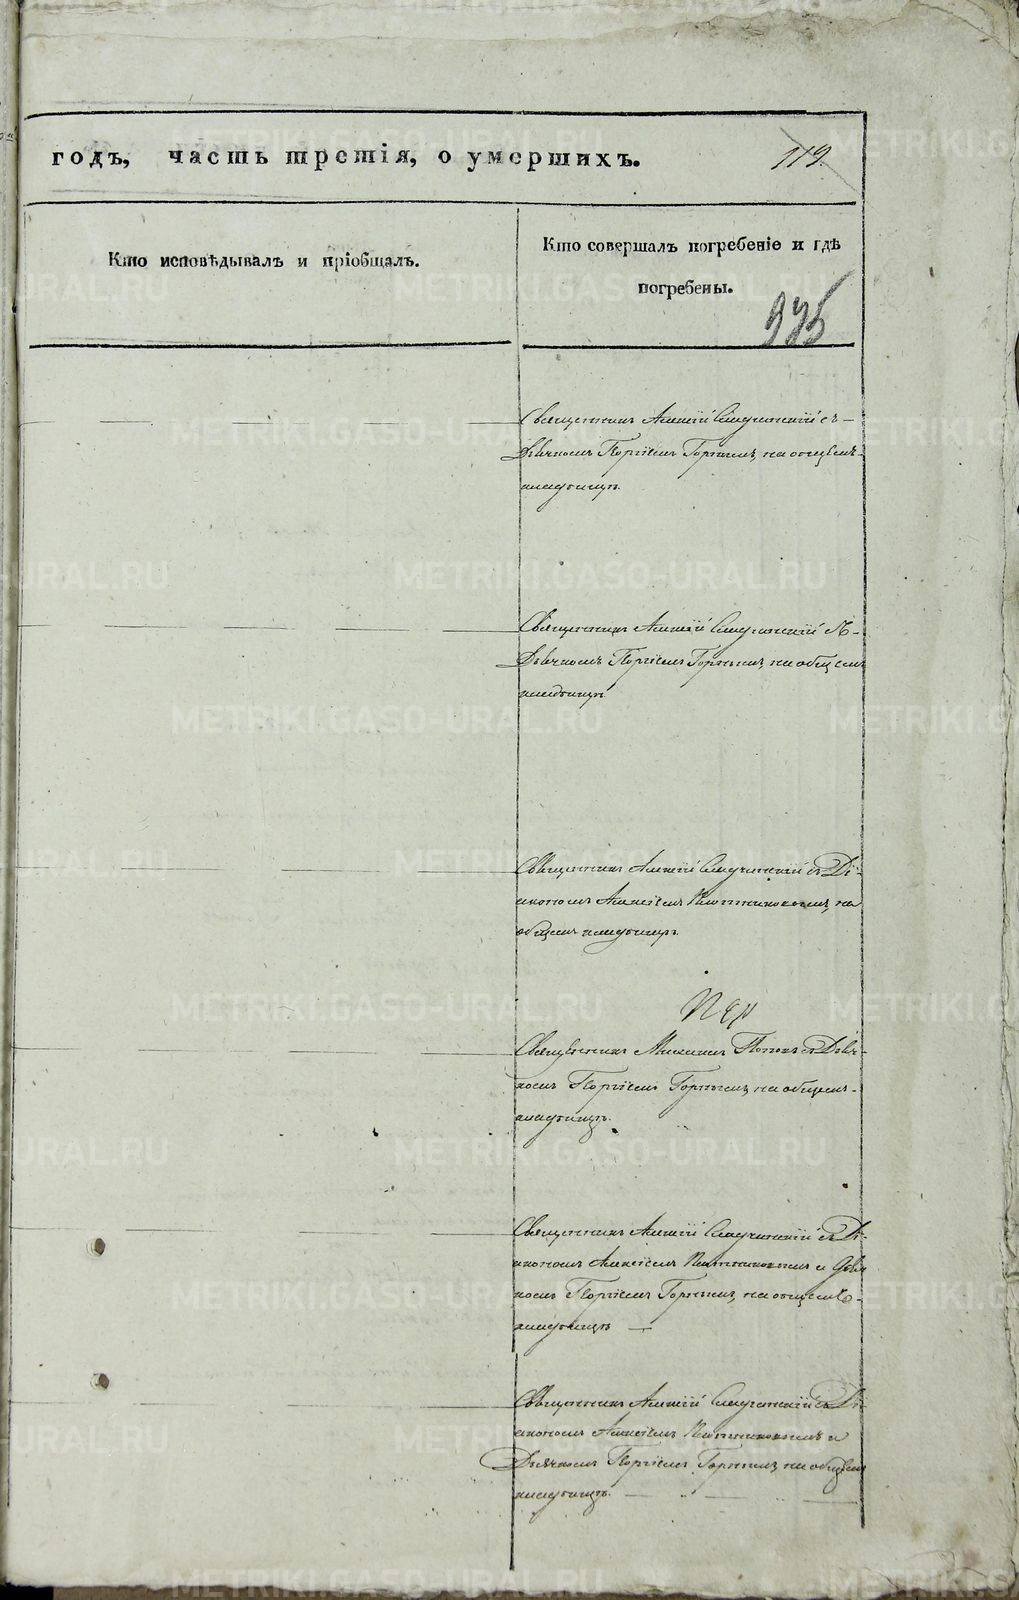 годъ, часть третія, о умершихъ.
119.
Кто исповѣдывалъ и пріобщалъ.
Кто совершалъ погребеніе и гдѣ
погребены.
935
Священникъ Алексій съ
Дьячкомъ Георгіемъ Горнымъ, на общемъ
кладбищѣ.
Священникъ Алексій съ
Дьячкомъ Георгіемъ Горнымъ, на общемъ
кладбищѣ
Священникъ Алексій съ Ді-
акономъ Алексіемъ Плотниковымъ, на
общемъ кладбищѣ.
Священникъ Поповъ съ Дьяч-
комъ Георгіемъ Горнымъ, на общемъ
кладбищѣ.
Священникъ Алексій съ Ді-
акономъ Алексіемъ Плотниковымъ и Дьяч
комъ Георгіемъ Горнымъ, на общемъ
кладбищѣ
Священникъ Алексій съ Ді-
акономъ Алексіемъ Плотниковымъ и
Дьячкомъ Георгіемъ Горнымъ, на общемъ
кладбищѣ.
METRIKI.GASO-URAL.RU